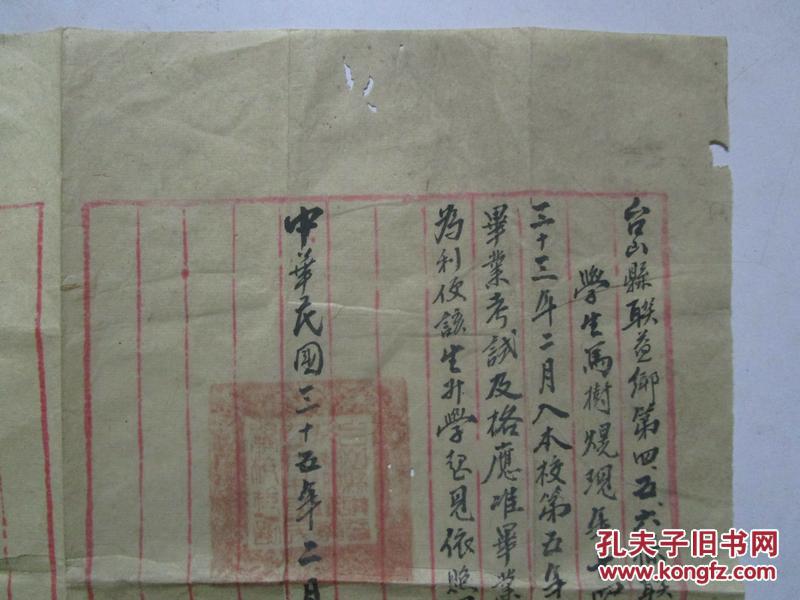 台山縣聯益鄉第四五六
學生馬樹焜現年
三十三年二月入本校第五年
畢業考試及格應准畢業
為利便該生升學起見依照
中華民國三十五年二月
孔夫子旧书网
www.kongfz.com